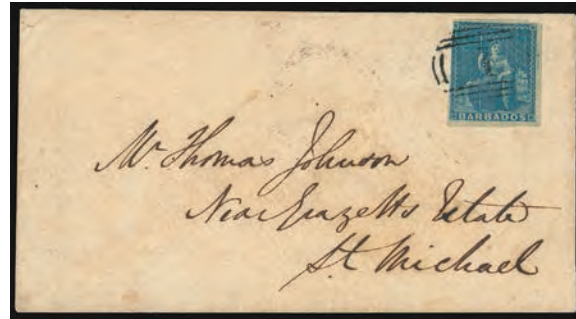 BARBADOS
1
Mr. Thomas Johnson
Near Grazetts Estate
St. Michael